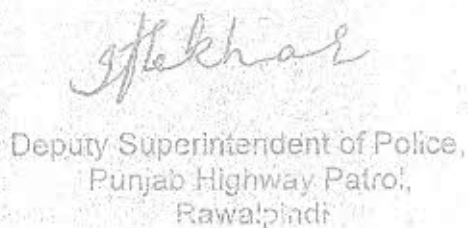 Iftekhar
Deputy Superintendent of Police,
Punjab Highway Patrol,
Rawalpindi